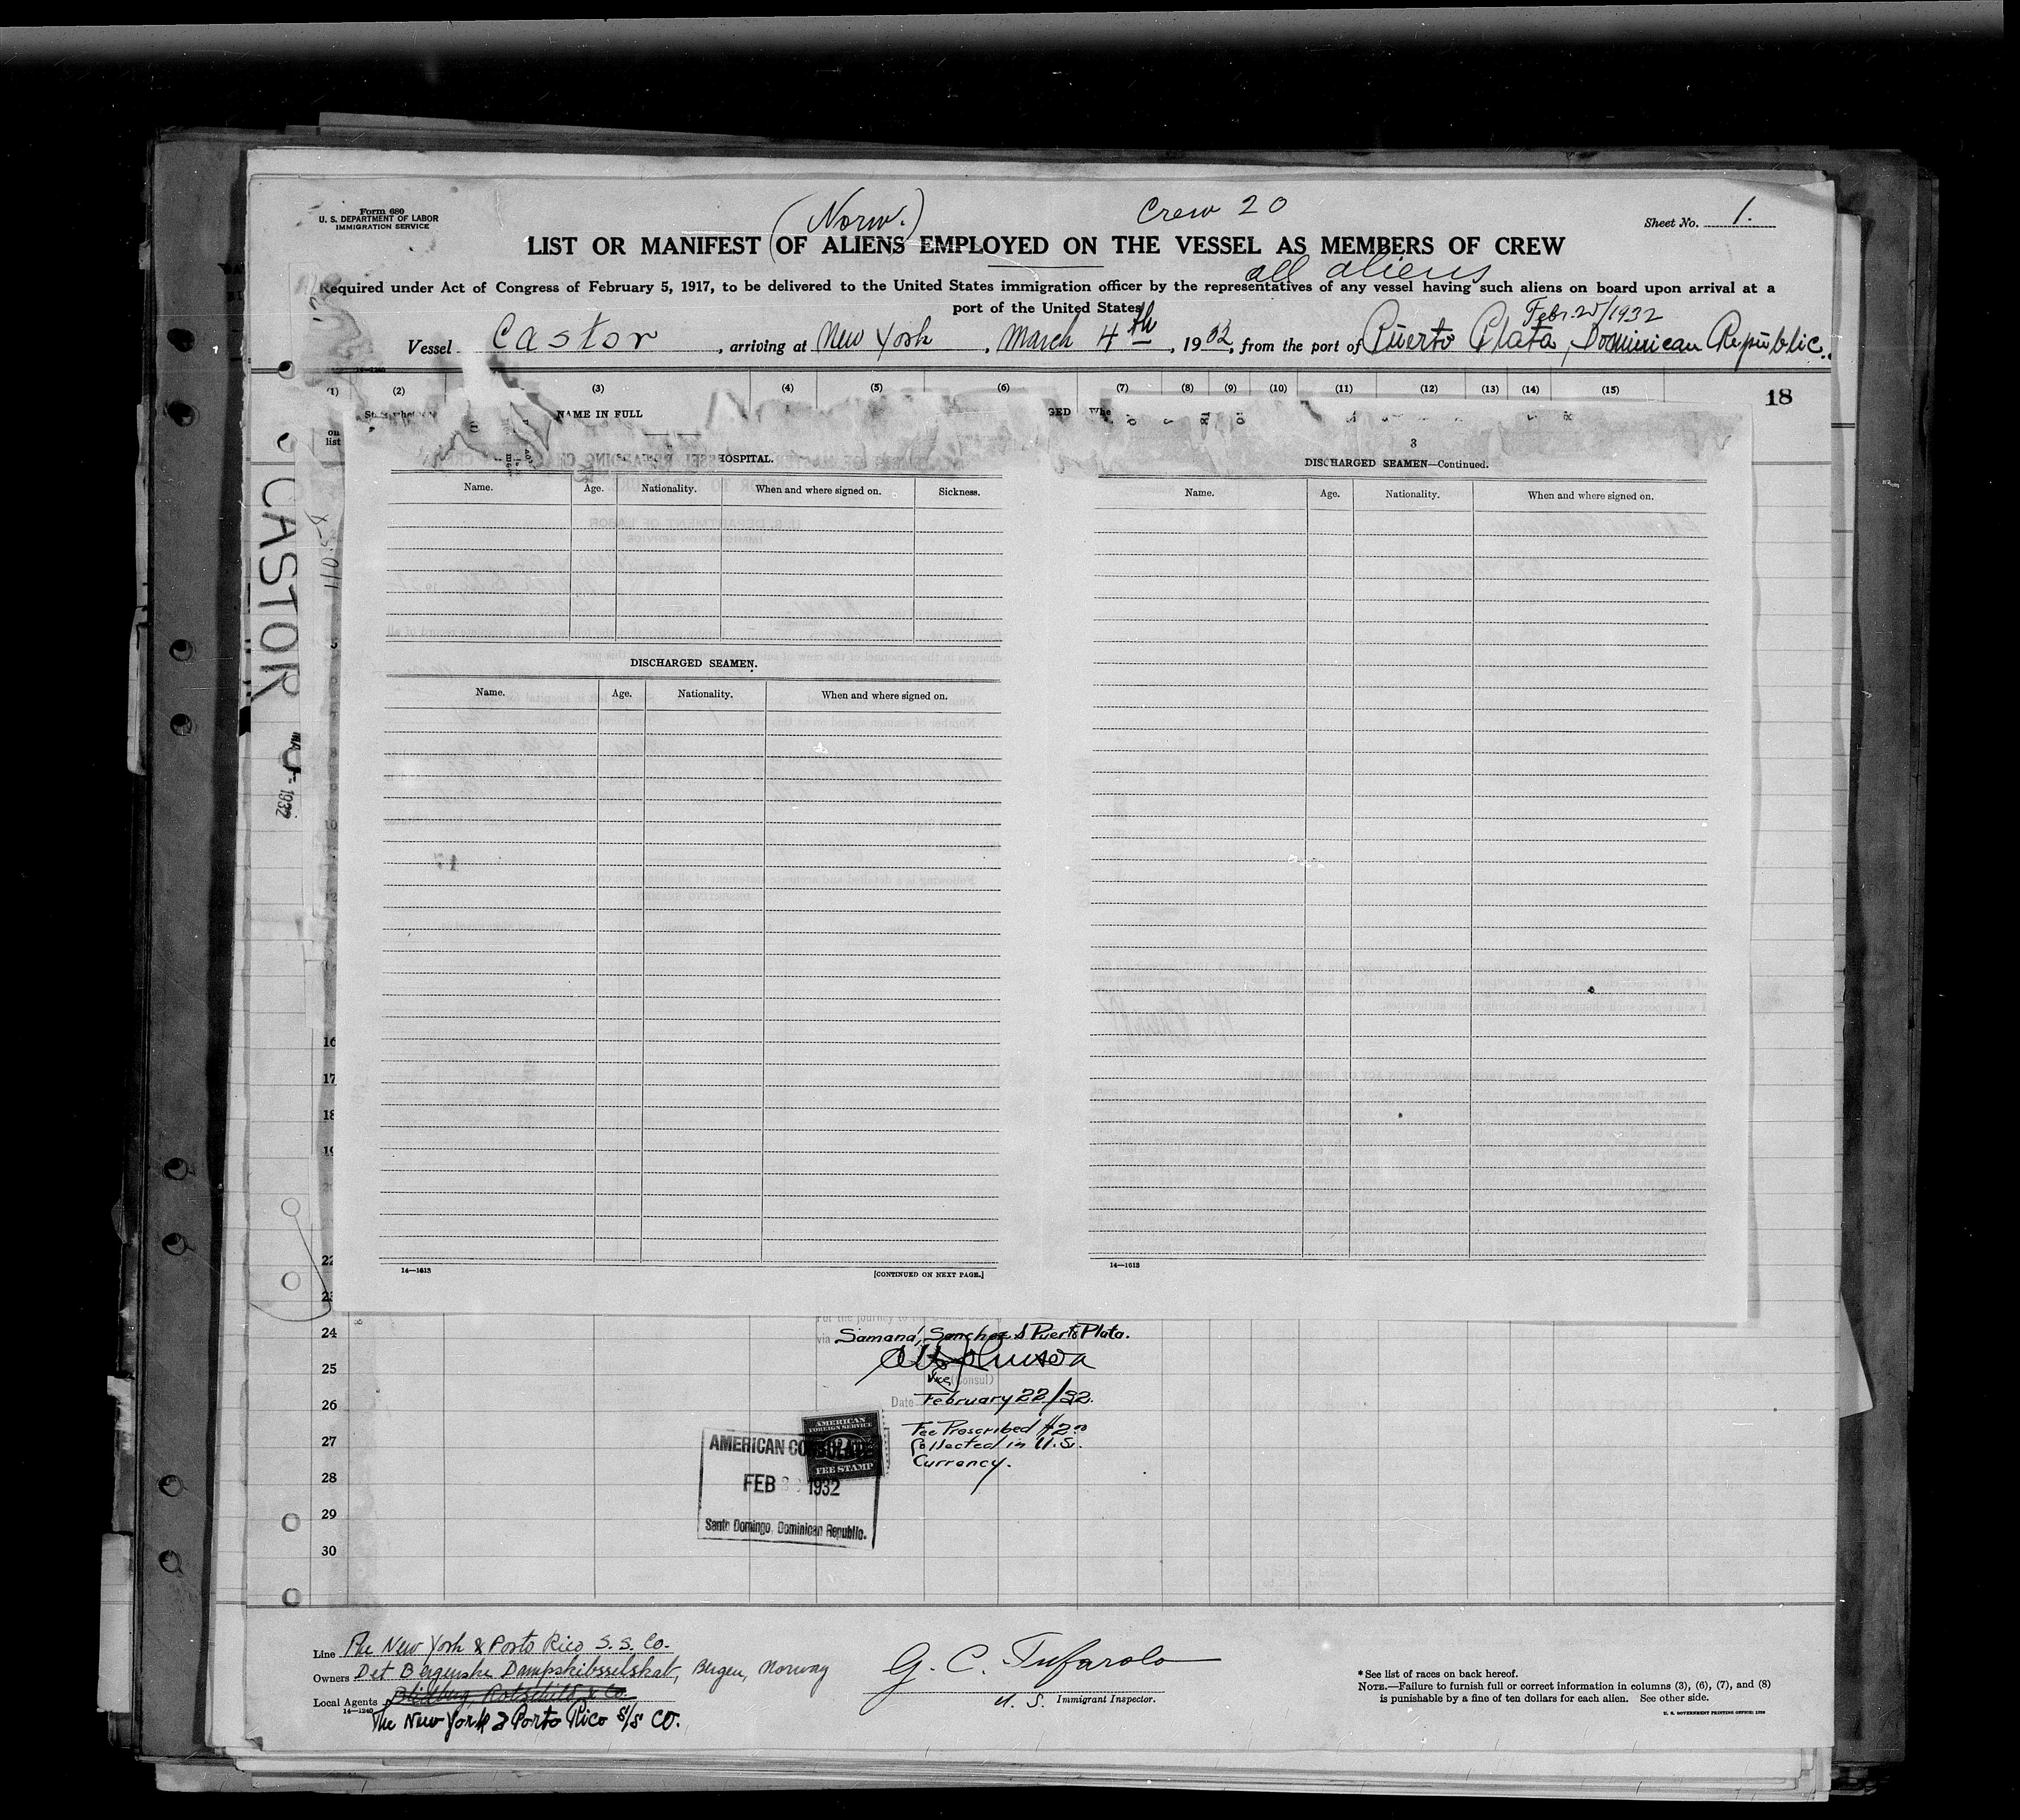 Form 680
U. S. DEPARTMENT OF LABOR
IMMIGRATION SERVICE
(Norw.)
Crew 20
Sheet No. 1.
LIST OR MANIFEST OF ALIENS EMPLOYED ON THE VESSEL AS MEMBERS OF CREW
all aliens
Required under Act of Congress of February 5, 1917, to be delivered to the United States immigration officer by the representatives of any vessel having such aliens on board upon arrival at a
port of the United States
Febr. 25/1932
Vessel Castor, arriving at New York, March 4th, 1932, from the port of Puerto Plata, Dominican Republic.
(1) (2) (3) (4) (5) (6) (7) (8) (9) (10) (11) (12) (13) (14) (15)
18
NAME IN FULL
on
list
3
HOSPITAL.
Name. Age. Nationality. When and where signed on. Sickness.
DISCHARGED SEAMEN.
Name. Age. Nationality. When and where signed on.
14—1613
[CONTINUED ON NEXT PAGE.]
DISCHARGED SEAMEN—Continued.
Name. Age. Nationality. When and where signed on.
14—1613
CASTOR
1932
5
8
10
16
17
18
19
22
23
24
25
26
27
28
29
30
For the journey to
via Samana, Sanchez & Puerto Plata.
Vice (Consul)
Date February 22/32.
Fee Prescribed $2.00
Collected in U.S.
Currency.
AMERICAN
FOREIGN SERVICE
FEE STAMP
AMERICAN CONSULATE
FEB 1932
Santo Domingo, Dominican Republic.
Line The New York & Porto Rico S. S. Co.
Owners Det Bergenske Dampskibsselskab, Bergen, Norway
Local Agents
14—1240
The New York & Porto Rico S/S Co.
G. C. Tufarolo
U. S. Immigrant Inspector.
* See list of races on back hereof.
NOTE.—Failure to furnish full or correct information in columns (3), (6), (7), and (8)
is punishable by a fine of ten dollars for each alien. See other side.
U. S. GOVERNMENT PRINTING OFFICE